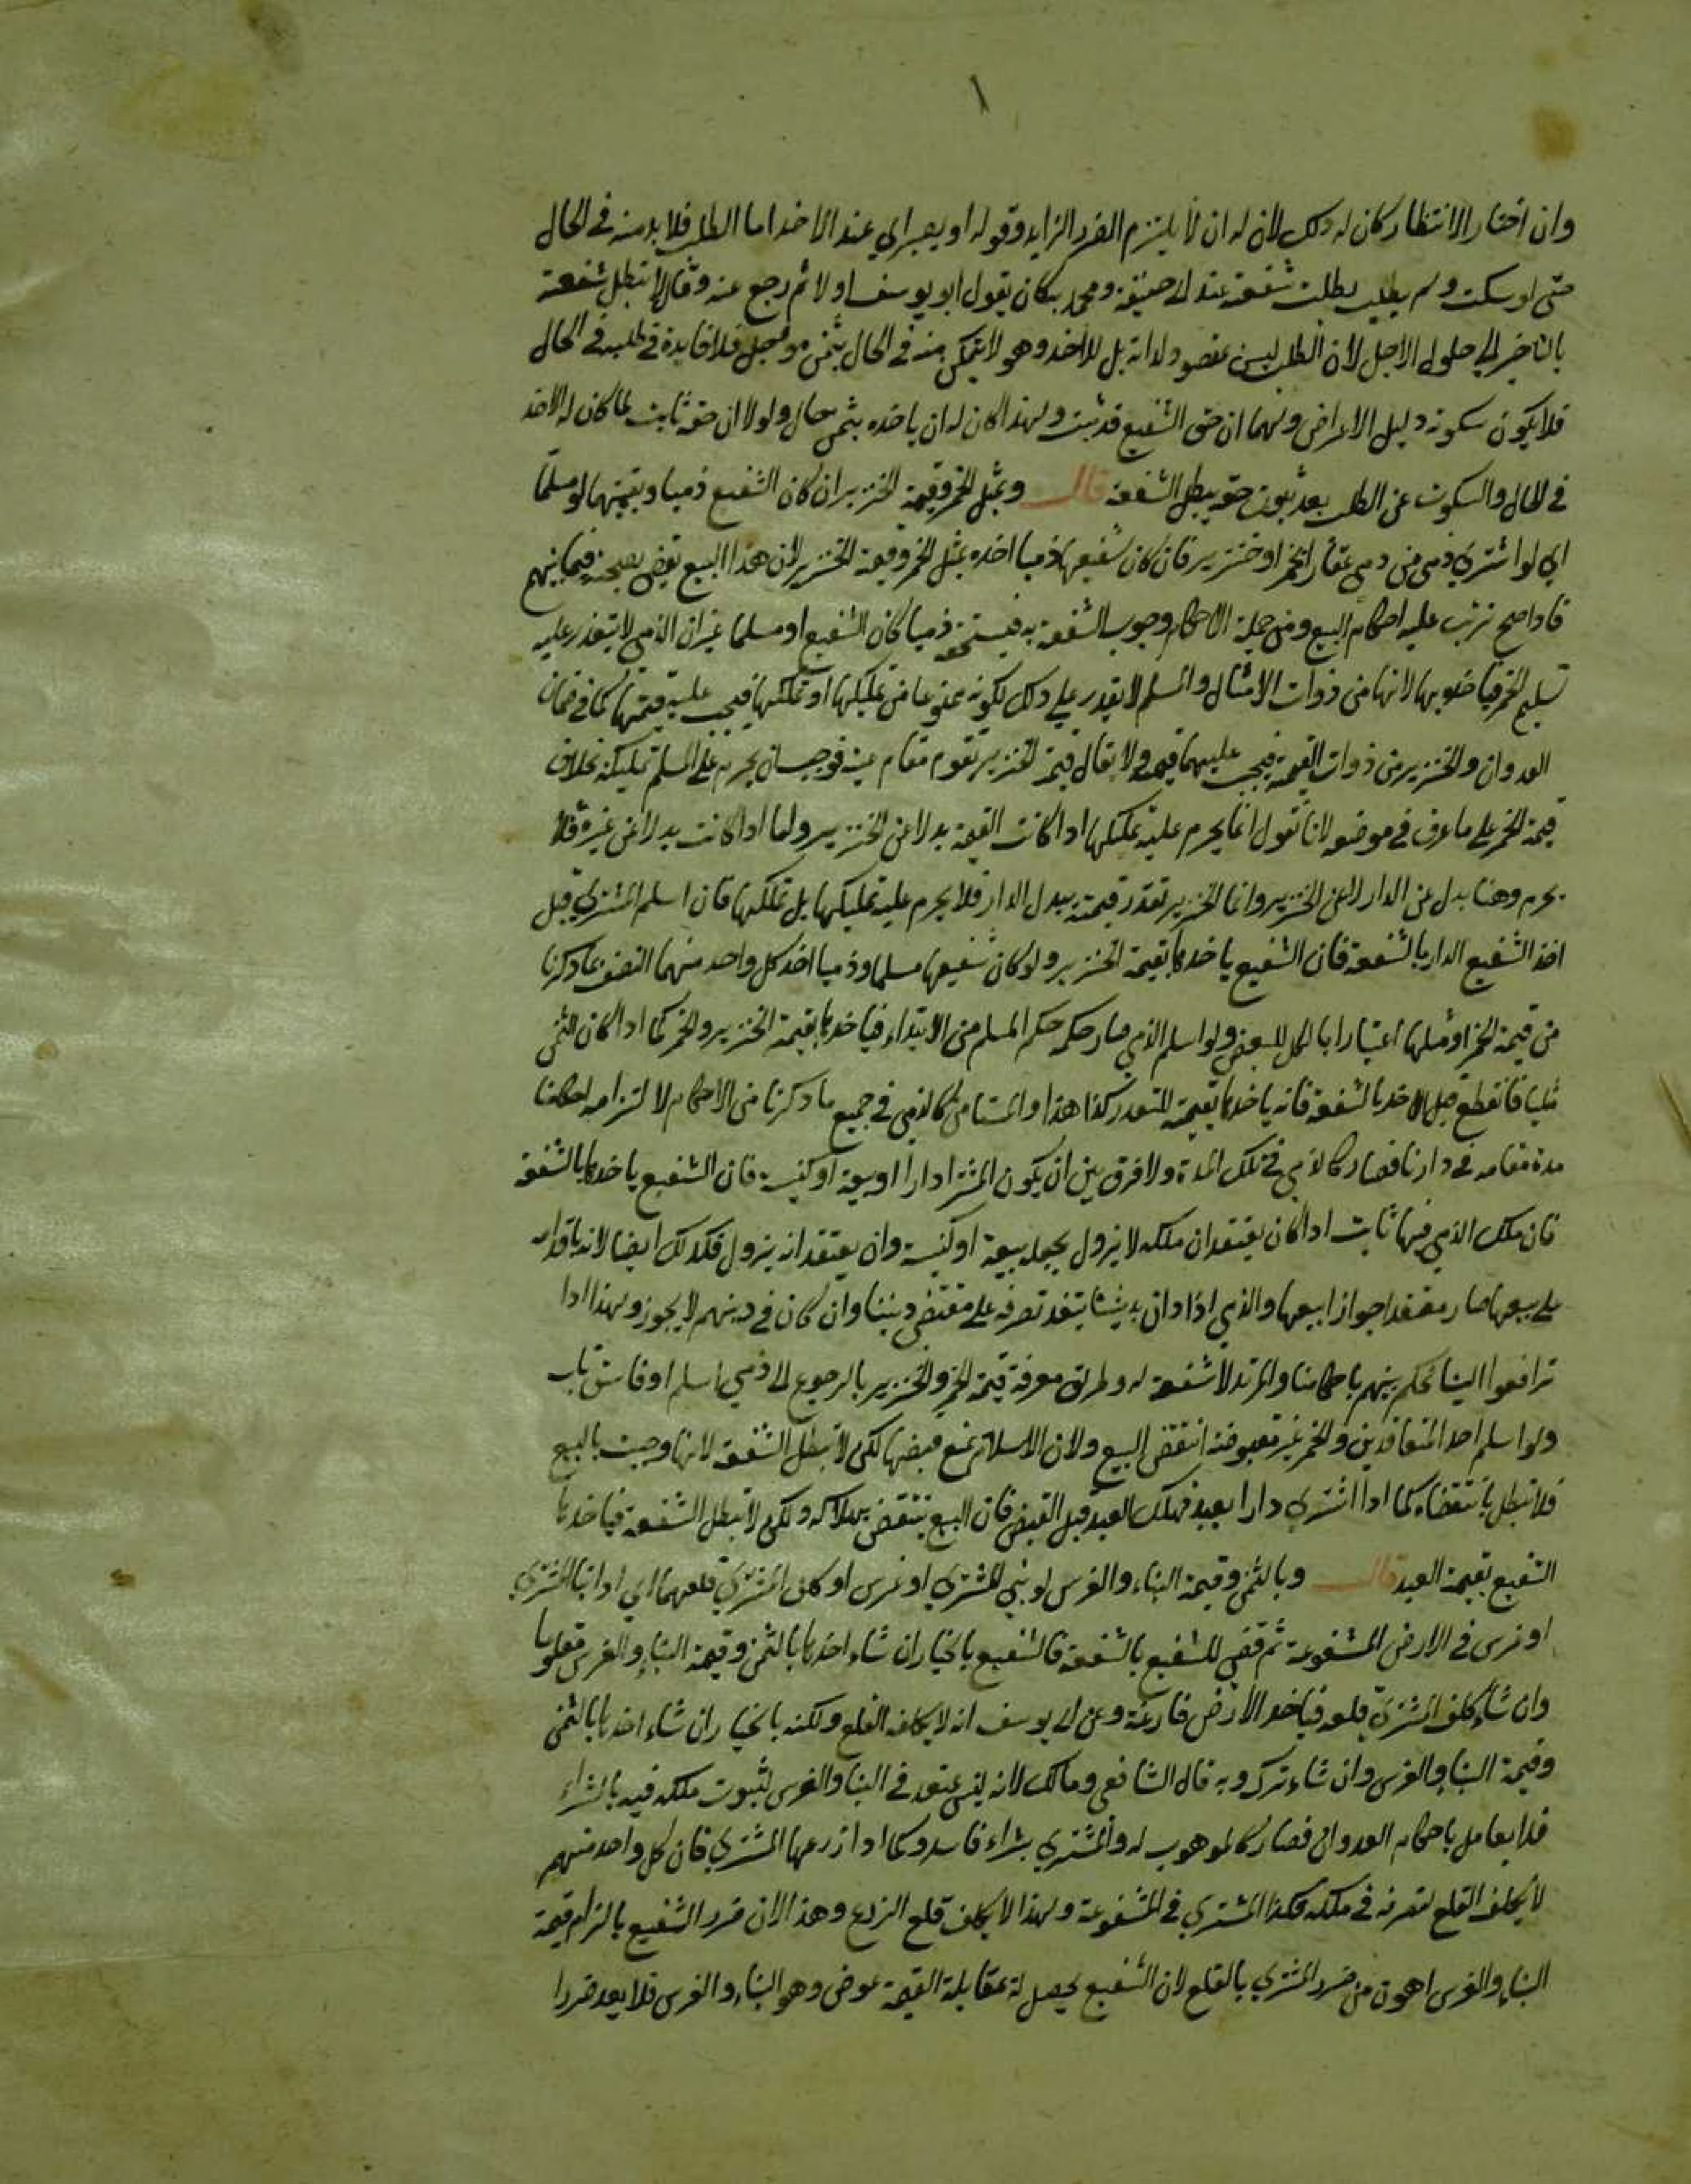 ١
وان اختار الانتظار كان له ذلك لان له ان لا يلتزم الضرر الزايد وقوله او يصبر اي عند الاخذ اما الطلب فلا بد منه في الحال
حتى لو سكت ولم يطلب بطلت شفعته عند ابي حنيفة ومحمد وكان يقول ابو يوسف اولا ثم رجع عنه وقال لا تبطل شفعته
بالتاخير الى حلول الاجل لان الطلب ليس بمقصود لذاته بل للاخذ وهو لا يتمكن منه في الحال بثمن موجل فلا فايدة في طلبه في الحال
فلا يكون سكوته دليل الاعراض ولهما ان حق الشفيع قد ثبت ولهذا كان له ان ياخذه بثمن حال ولولا ان حقه ثابت لما كان له الاخذ
في الحال والسكوت عن الطلب بعد ثبوت حقه يبطل الشفعة قال وبمثل الخمر وقيمة الخنزير ان كان الشفيع ذميا وبقيمتهما لو مسلما
اي لو اشترى ذمي من ذمي عقارا بخمر او خنزير فان كان شفيعها ذميا اخذه بمثل الخمر وقيمة الخنزير لان هذا البيع يقضى بصحته فيما بينهم
فاذا صح ترتب عليه احكام البيع ومن جملة الاحكام وجوب الشفعة به فيستحقه ذميا كان الشفيع او مسلما غير ان الذمي لا يتعذر عليه
تسليم الخمر فياخذ بها لانها من ذوات الامثال والمسلم لا يقدر على ذلك لكونه ممنوعا من تمليكها او تملكها فيجب عليه قيمتها كما في ضمان
العدوان والخنزير من ذوات القيمة فيجب عليهما قيمته ولا يقال قيمة الخنزير تقوم مقام عينه فوجب ان يحرم على المسلم تمليكه بخلاف
قيمة الخمر على ما عرف في موضعه لانا نقول انما يحرم عليه تملكها اذا كانت القيمة بدلا عن الخنزير واما اذا كانت بدلا عن غيره فلا
يحرم وهنا بدل عن الدار لا عن الخنزير وانما الخنزير تقدر قيمته ببدل الدار فلا يحرم عليه تمليكها بل تملكها فان اسلم المشتري قبل
اخذ الشفيع الدار بالشفعة فان الشفيع ياخذها بقيمة الخنزير ولو كان شفيعها مسلما وذميا اخذ كل واحد منهما النصف بما ذكرنا
من قيمة الخمر او مثلها اعتبارا بالكل للبعض ولو اسلم الذمي صار حكمه حكم المسلم من الابتداء فياخذها بقيمة الخنزير والخمر كما اذا كان الثمن
مثليا فانقطع قبل الاخذ بالشفعة فانه ياخذها بقيمته للتعذر كذا هذا والمستامن كالذمي في جميع ما ذكرنا من الاحكام لالتزامه احكامنا
مدة مقامه في دارنا فصار كالذمي في تلك المدة ولا فرق بين ان يكون المشترا دارا او بيعة او كنيسة فان الشفيع ياخذها بالشفعة
فان ملك الذمي فيها ثابت اذا كان يعتقد ان ملكه لا يزول بجعله بيعة او كنيسة وان يعتقد انه يزول فكذلك ايضا لانه باقدامه
على بيعها صار معتقدا جواز ابيعها والذمي اذا دان بديننا ينفذ تصرفه على مقتضى ديننا وان كان في دينهم لا يجوز ولهذا اذا
ترافعوا الينا نحكم بينهم باحكامنا والمرتد لا شفعة له وطريق معرفة قيمة الخمر والخنزير بالرجوع الى ذمي اسلم او فاسق تاب
ولو اسلم احد المتعاقدين والخمر غير مقبوضة انتقض البيع ولان الاسلام يمنع قبضها لكن لا تبطل الشفعة لانها وجبت بالبيع
فلا تبطل بانتقضاه كما اذا اشترى دارا بعبد فهلك العبد قبل القبض فان البيع ينتقض بهلاكه ولكن لا تبطل الشفعة فياخذها
الشفيع بقيمة العبد قال وبالثمن وقيمة البناء والغرس لو بنى المشتري او غرس او كلف المشتري قلعهما اي اذا بنا المشتري
او غرس في الارض المشفوعة ثم قضي للشفيع بالشفعة فالشفيع بالخيار ان شاء اخذها بالثمن وقيمة البناء والغرس مقلوعا
وان شاء كلف المشتري قلعه فياخذ الارض فارغة وعن ابي يوسف انه لا يكلف القلع ولكنه بالخيار ان شاء اخذها بالثمن
وقيمة البناء والغرس وان شاء ترك وبه قال الشافعي ومالك لانه ليس بمتعد في البناء والغرس لثبوت ملكه فيه بالشراء
فلا يعامل باحكام العدوان فصار كالموهوب له والمشتري بشراء فاسد وكما اذا زرعها المشتري فان كل واحد منهم
لا يكلف القلع لتصرفه في ملكه فكذا المشتري في المشفوعة ولهذا لا يكلف قلع الزرع وهذا لان ضرر الشفيع بالزام قيمة
البناء والغرس اهون من ضرر المشتري بالقلع لان الشفيع يحصل له بمقابلة القيمة عوض وهو البناء والغرس فلا يعد ضررا